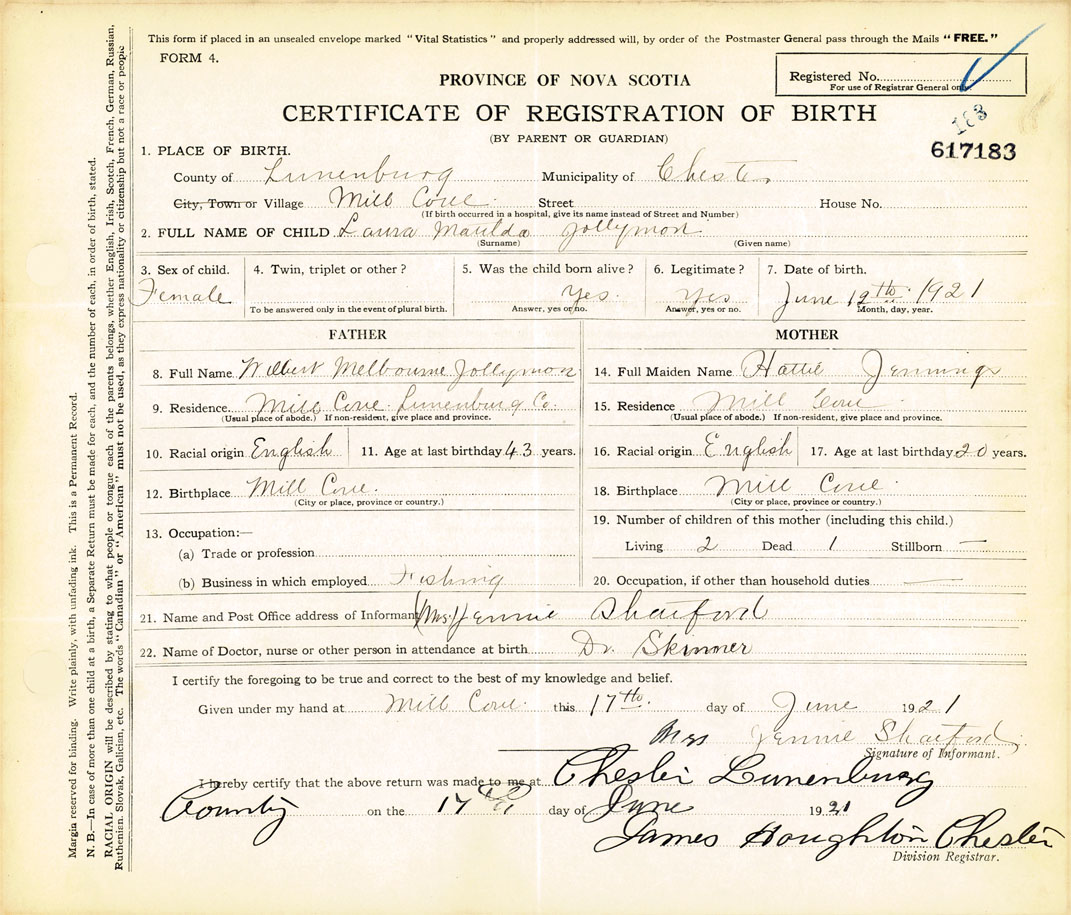 This form if placed in an unsealed envelope marked "Vital Statistics" and properly addressed will, by order of the Postmaster General pass through the Mails "FREE."
FORM 4.
Registered No.
For use of Registrar General only
PROVINCE OF NOVA SCOTIA
CERTIFICATE OF REGISTRATION OF BIRTH
(BY PARENT OR GUARDIAN)
183
617183
1. PLACE OF BIRTH.
County of Lunenburg Municipality of Chester
City, Town or Village Mill Cove Street House No.
(If birth occurred in a hospital, give its name instead of Street and Number)
2. FULL NAME OF CHILD Laura Matilda Jollymon
(Surname) (Given name)
3. Sex of child. 4. Twin, triplet or other? 5. Was the child born alive? 6. Legitimate? 7. Date of birth.
Female Yes. Yes June 12th 1921
To be answered only in the event of plural birth. Answer, yes or no. Answer, yes or no. Month, day, year.
FATHER
8. Full Name Wilbert Melbourne Jollymon
9. Residence. Mill Cove Lunenburg Co.
(Usual place of abode.) If non-resident, give place and province.
10. Racial origin English 11. Age at last birthday 43 years.
12. Birthplace Mill Cove.
(City or place, province or country.)
13. Occupation:—
(a) Trade or profession
(b) Business in which employed Fishing
MOTHER
14. Full Maiden Name Hattie Jennings
15. Residence Mill Cove
(Usual place of abode.) If non-resident, give place and province.
16. Racial origin English 17. Age at last birthday 20 years.
18. Birthplace Mill Cove
(City or place, province or country.)
19. Number of children of this mother (including this child.)
Living 2 Dead 1 Stillborn —
20. Occupation, if other than household duties —
21. Name and Post Office address of Informant (Mrs.) Jennie Shatford
22. Name of Doctor, nurse or other person in attendance at birth Dr. Skinner
I certify the foregoing to be true and correct to the best of my knowledge and belief.
Given under my hand at Mill Cove this 17th. day of June 1921
Mrs Jennie Shatford
Signature of Informant.
I hereby certify that the above return was made to me at Chester Lunenburg
County on the 17th day of June 1921
James Houghton Chester
Division Registrar.
Margin reserved for binding. Write plainly, with unfading ink. This is a Permanent Record.
N. B.—In case of more than one child at a birth, a Separate Return must be made for each, and the number of each, in order of birth, stated.
RACIAL ORIGIN will be described by stating to what people or tongue each of the parents belongs, whether English, Irish, Scotch, French, German, Russian,
Ruthenian, Slovak, Galician, etc. The words "Canadian" or "American" must not be used, as they express nationality or citizenship but not a race or people